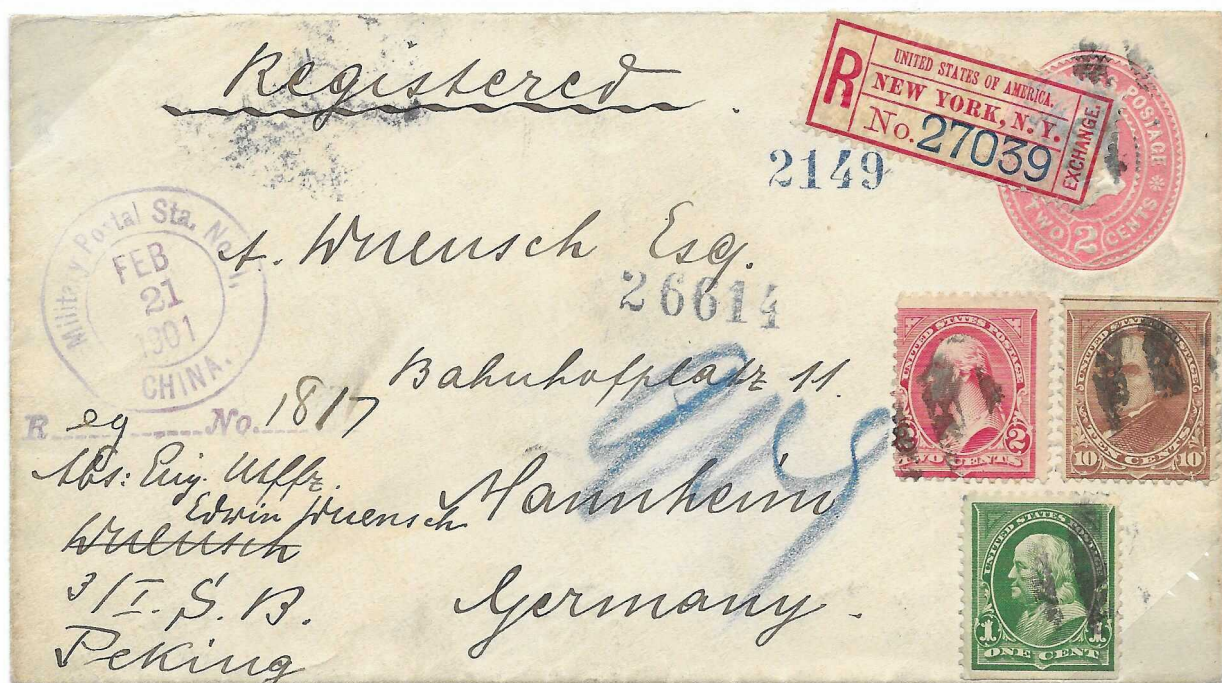 Registered
R
UNITED STATES OF AMERICA.
NEW YORK, N.Y.
No. 27039
EXCHANGE.
POSTAGE
TWO 2 CENTS
2149
Military Postal Sta. No. 1,
FEB
21
1901
CHINA.
A. Wuensch Esq.
26614
Bahnhofplatz 11
Mannheim
Germany.
R eg No. 1817
Abs: Einj. Uffz.
Edwin Wuensch
Wuensch
3/I. S. B.
Peking
UNITED STATES POSTAGE
TWO CENTS 2
UNITED STATES POSTAGE
10 TEN CENTS 10
UNITED STATES POSTAGE
1 ONE CENT 1